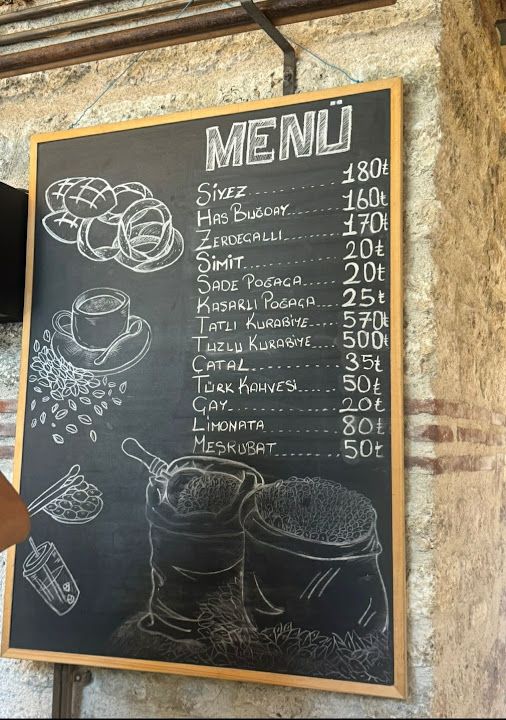 MENÜ
SİYEZ 180₺
HAS BUĞDAY 160₺
ZERDEÇALLI 170₺
SİMİT 20₺
SADE POĞAÇA 20₺
KAŞARLI POĞAÇA 25₺
TATLI KURABİYE 570₺
TUZLU KURABİYE 500₺
ÇATAL 35₺
TÜRK KAHVESİ 50₺
ÇAY 20₺
LİMONATA 80₺
MEŞRUBAT 50₺